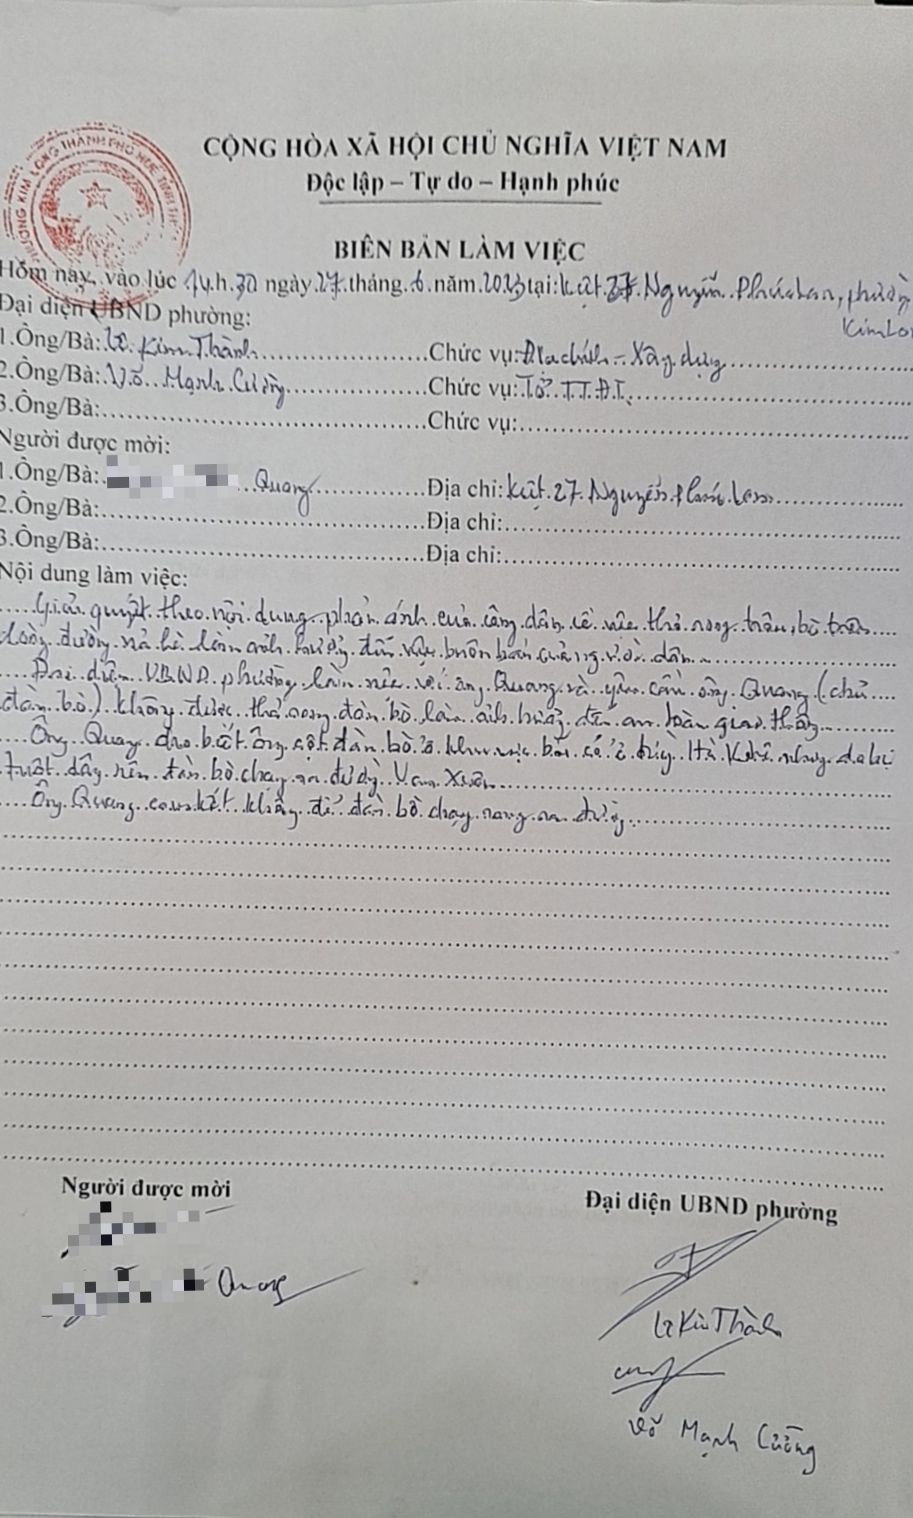 PHƯỜNG KIM LONG THÀNH PHỐ HUẾ TỈNH
CỘNG HÒA XÃ HỘI CHỦ NGHĨA VIỆT NAM
Độc lập – Tự do – Hạnh phúc
BIÊN BẢN LÀM VIỆC
Hôm nay, vào lúc 14.h.30 ngày.27.tháng.6.năm.2023 tại: kiệt 27 Nguyễn Phúc Lan, phường
Kim Lo
Đại diện UBND phường:
1.Ông/Bà: Lê Kim Thành Chức vụ: Địa chính – Xây dựng
2.Ông/Bà: Võ Mạnh Cường Chức vụ: Tổ T.T.Đ.T
3.Ông/Bà: Chức vụ:
Người được mời:
1.Ông/Bà: Quang Địa chỉ: Kiệt 27 Nguyễn Phúc Lan
2.Ông/Bà: Địa chỉ:
3.Ông/Bà: Địa chỉ:
Nội dung làm việc:
Giải quyết theo nội dung phản ánh của công dân về việc thả rong trâu, bò trên
lòng đường vỉa hè làm ảnh hưởng đến việc buôn bán của người dân
Đại diện UBND phường làm việc với ông Quang và yêu cầu ông Quang (chủ
đàn bò) không được thả rong đàn bò làm ảnh hưởng đến an toàn giao thông
Ông Quang cho biết ông cột đàn bò ở khu vực bãi cỏ ở Hà Khê nhưng do bị
tuột dây nên đàn bò chạy ra đường Vạn Xuân
Ông Quang cam kết không để đàn bò chạy rong ra đường
Người được mời
Đại diện UBND phường
Quang
Lê Kim Thành
Võ Mạnh Cường